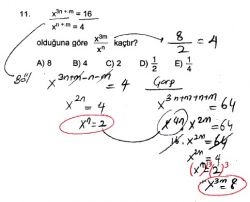 11. x^{3n+m} = 16
x^{n+m} = 4
olduğuna göre x^{3m}/x^n kaçtır?
8/2 = 4
A) 8 B) 4 C) 2 D) 1/2 E) 1/4
böl
x^{3n+m-n-m} = 4
Çarp
x^{2n} = 4
x^{3n+m+n+m} = 64
x^n = 2
x^{4n} · x^{2m} = 64
16 · x^{2m} = 64
x^{2m} = 4
(x^m)^3 = (2)^3
x^{3m} = 8